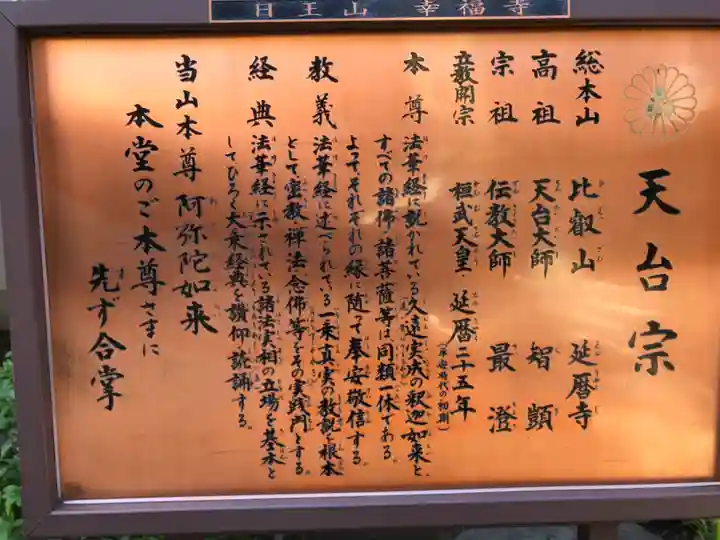 日王山 幸福寺
天台宗
総本山 比叡山 延暦寺
高祖 天台大師 智顗
宗祖 伝教大師 最澄
立教開宗 桓武天皇 延暦二十五年(平安時代の初期)
本尊 法華経に説かれている久遠実成の釈迦如来と、
すべての諸佛・諸菩薩等は同類一体である。
よってそれぞれの縁に随って奉安敬信する。
教義 法華経に述べられている一乗真実の教説を根本
として密教・禅法・念佛等をその実践門とする
経典 法華経に示されている諸法実相の立場を基本と
してひろく大乗経典を讃仰読誦する。
当山本尊 阿弥陀如来
本堂のご本尊さまに
先ず合掌